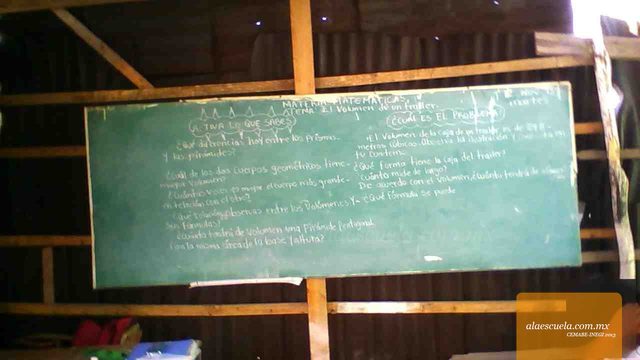 MATERIA: MATEMATICAS.
TEMA: El Volumen de un trailer.
martes
ACTIVA LO QUE SABES
¿Qué diferencias hay entre los Prismas
y las pirámides?
¿Cuál de los dos cuerpos geométricos tiene
mayor volumen?
¿Cuántas veces es mayor el cuerpo más grande
en relación con el otro?
¿Qué relación observas entre los Volúmenes y
sus fórmulas?
¿Cuánto tendrá de Volumen una Pirámide Pentagonal
con la misma área de la base y altura?
¿Cuál ES EL PROBLEMA?
El Volumen de la caja de un trailer es de
metros cúbicos. Observa la ilustración y
tu cuaderno
-¿Qué forma tiene la caja del trailer?
-¿Cuánto mide de largo?
De acuerdo con el volumen ¿Cuánto tendrá de
-¿Qué fórmula se puede
alaescuela.com.mx
CEMABE-INEGI 2013